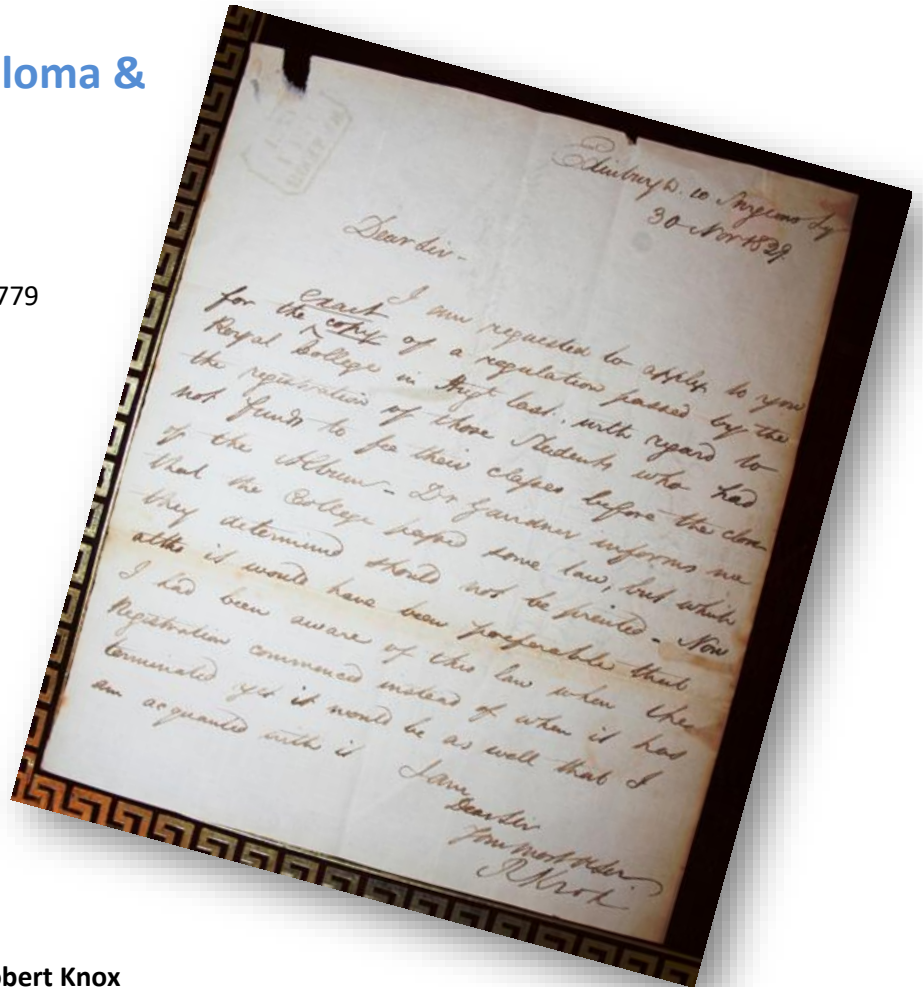 loma &
779
Edinburgh. 10 Surgeons Sq
30 Nov 1829.
Dear Sir -
I am requested to apply to you
for the exact copy of a regulation passed by the
Royal College in Augt last. with regard to
the registration of those Students who had
not funds to fee their classes before the close
of the Album - Dr Gairdner informs me
that the College passed some law, but which
they determined should not be printed - Now
altho it would have been preferable that
I had been aware of this law when the
Registration commenced instead of when it has
terminated yet it would be as well that I
am acquainted with it
I am
Dear Sir
Your most obdt
R Knox
bert Knox